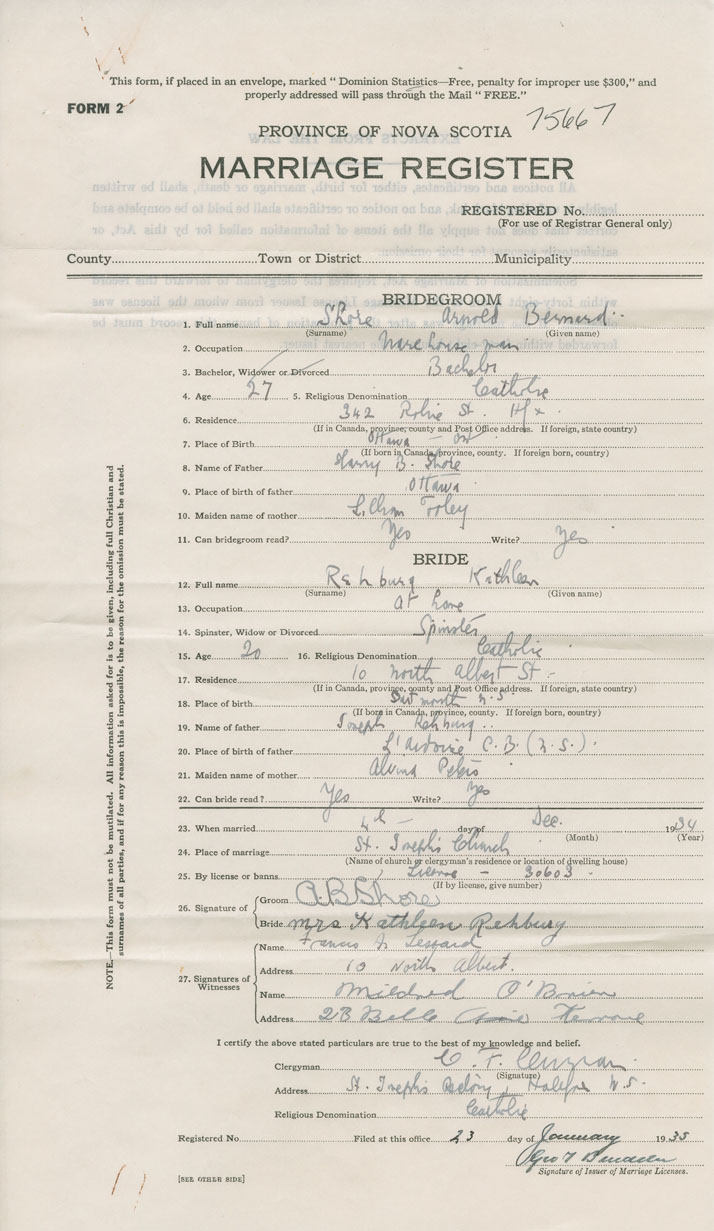 This form, if placed in an envelope, marked " Dominion Statistics—Free, penalty for improper use $300," and
properly addressed will pass through the Mail " FREE."
FORM 2
75667
PROVINCE OF NOVA SCOTIA
MARRIAGE REGISTER
REGISTERED No.
(For use of Registrar General only)
County Town or District Municipality
BRIDEGROOM
1. Full name Shore Arnold Bernard
(Surname) (Given name)
2. Occupation Warehouse man
3. Bachelor, Widower or Divorced Bachelor
4. Age 27 5. Religious Denomination Catholic
6. Residence 342 Robie St. Hfx
(If in Canada, province, county and Post Office address. If foreign, state country)
7. Place of Birth Ottawa – Ont
(If born in Canada, province, county. If foreign born, country)
8. Name of Father Harry B. Shore
9. Place of birth of father Ottawa
10. Maiden name of mother
11. Can bridegroom read? Yes Write? Yes
BRIDE
12. Full name Rehburg Kathleen
(Surname) (Given name)
13. Occupation at home
14. Spinster, Widow or Divorced Spinster
15. Age 20 16. Religious Denomination Catholic
17. Residence 10 North Albert St.
(If in Canada, province, county and Post Office address. If foreign, state country)
18. Place of birth Dartmouth N.S
(If born in Canada, province, county. If foreign born, country)
19. Name of father Joseph Rehburg
20. Place of birth of father L'Ardoise C.B. (N.S.)
21. Maiden name of mother Alvina
22. Can bride read? Yes Write? Yes
23. When married 4th day of Dec. 1934
(Month) (Year)
24. Place of marriage St. Joseph's Church
(Name of church or clergyman's residence or location of dwelling house)
25. By license or banns License – 30603
(If by license, give number)
26. Signature of
Groom A.B. Shore
Bride Mrs Kathleen Rehburg
27. Signatures of Witnesses
Name Francis
Address 10 North Albert.
Name Mildred O'Brien
Address 28 Belle
I certify the above stated particulars are true to the best of my knowledge and belief.
Clergyman C. F.
(Signature)
Address St. Joseph's Halifax N.S.
Religious Denomination Catholic
Registered No. Filed at this office 23 day of January 1935
Geo T
Signature of Issuer of Marriage Licenses.
[SEE OTHER SIDE]
NOTE.—This form must not be mutilated. All information asked for is to be given, including full Christian and
surnames of all parties, and if for any reason this is impossible, the reason for the omission must be stated.